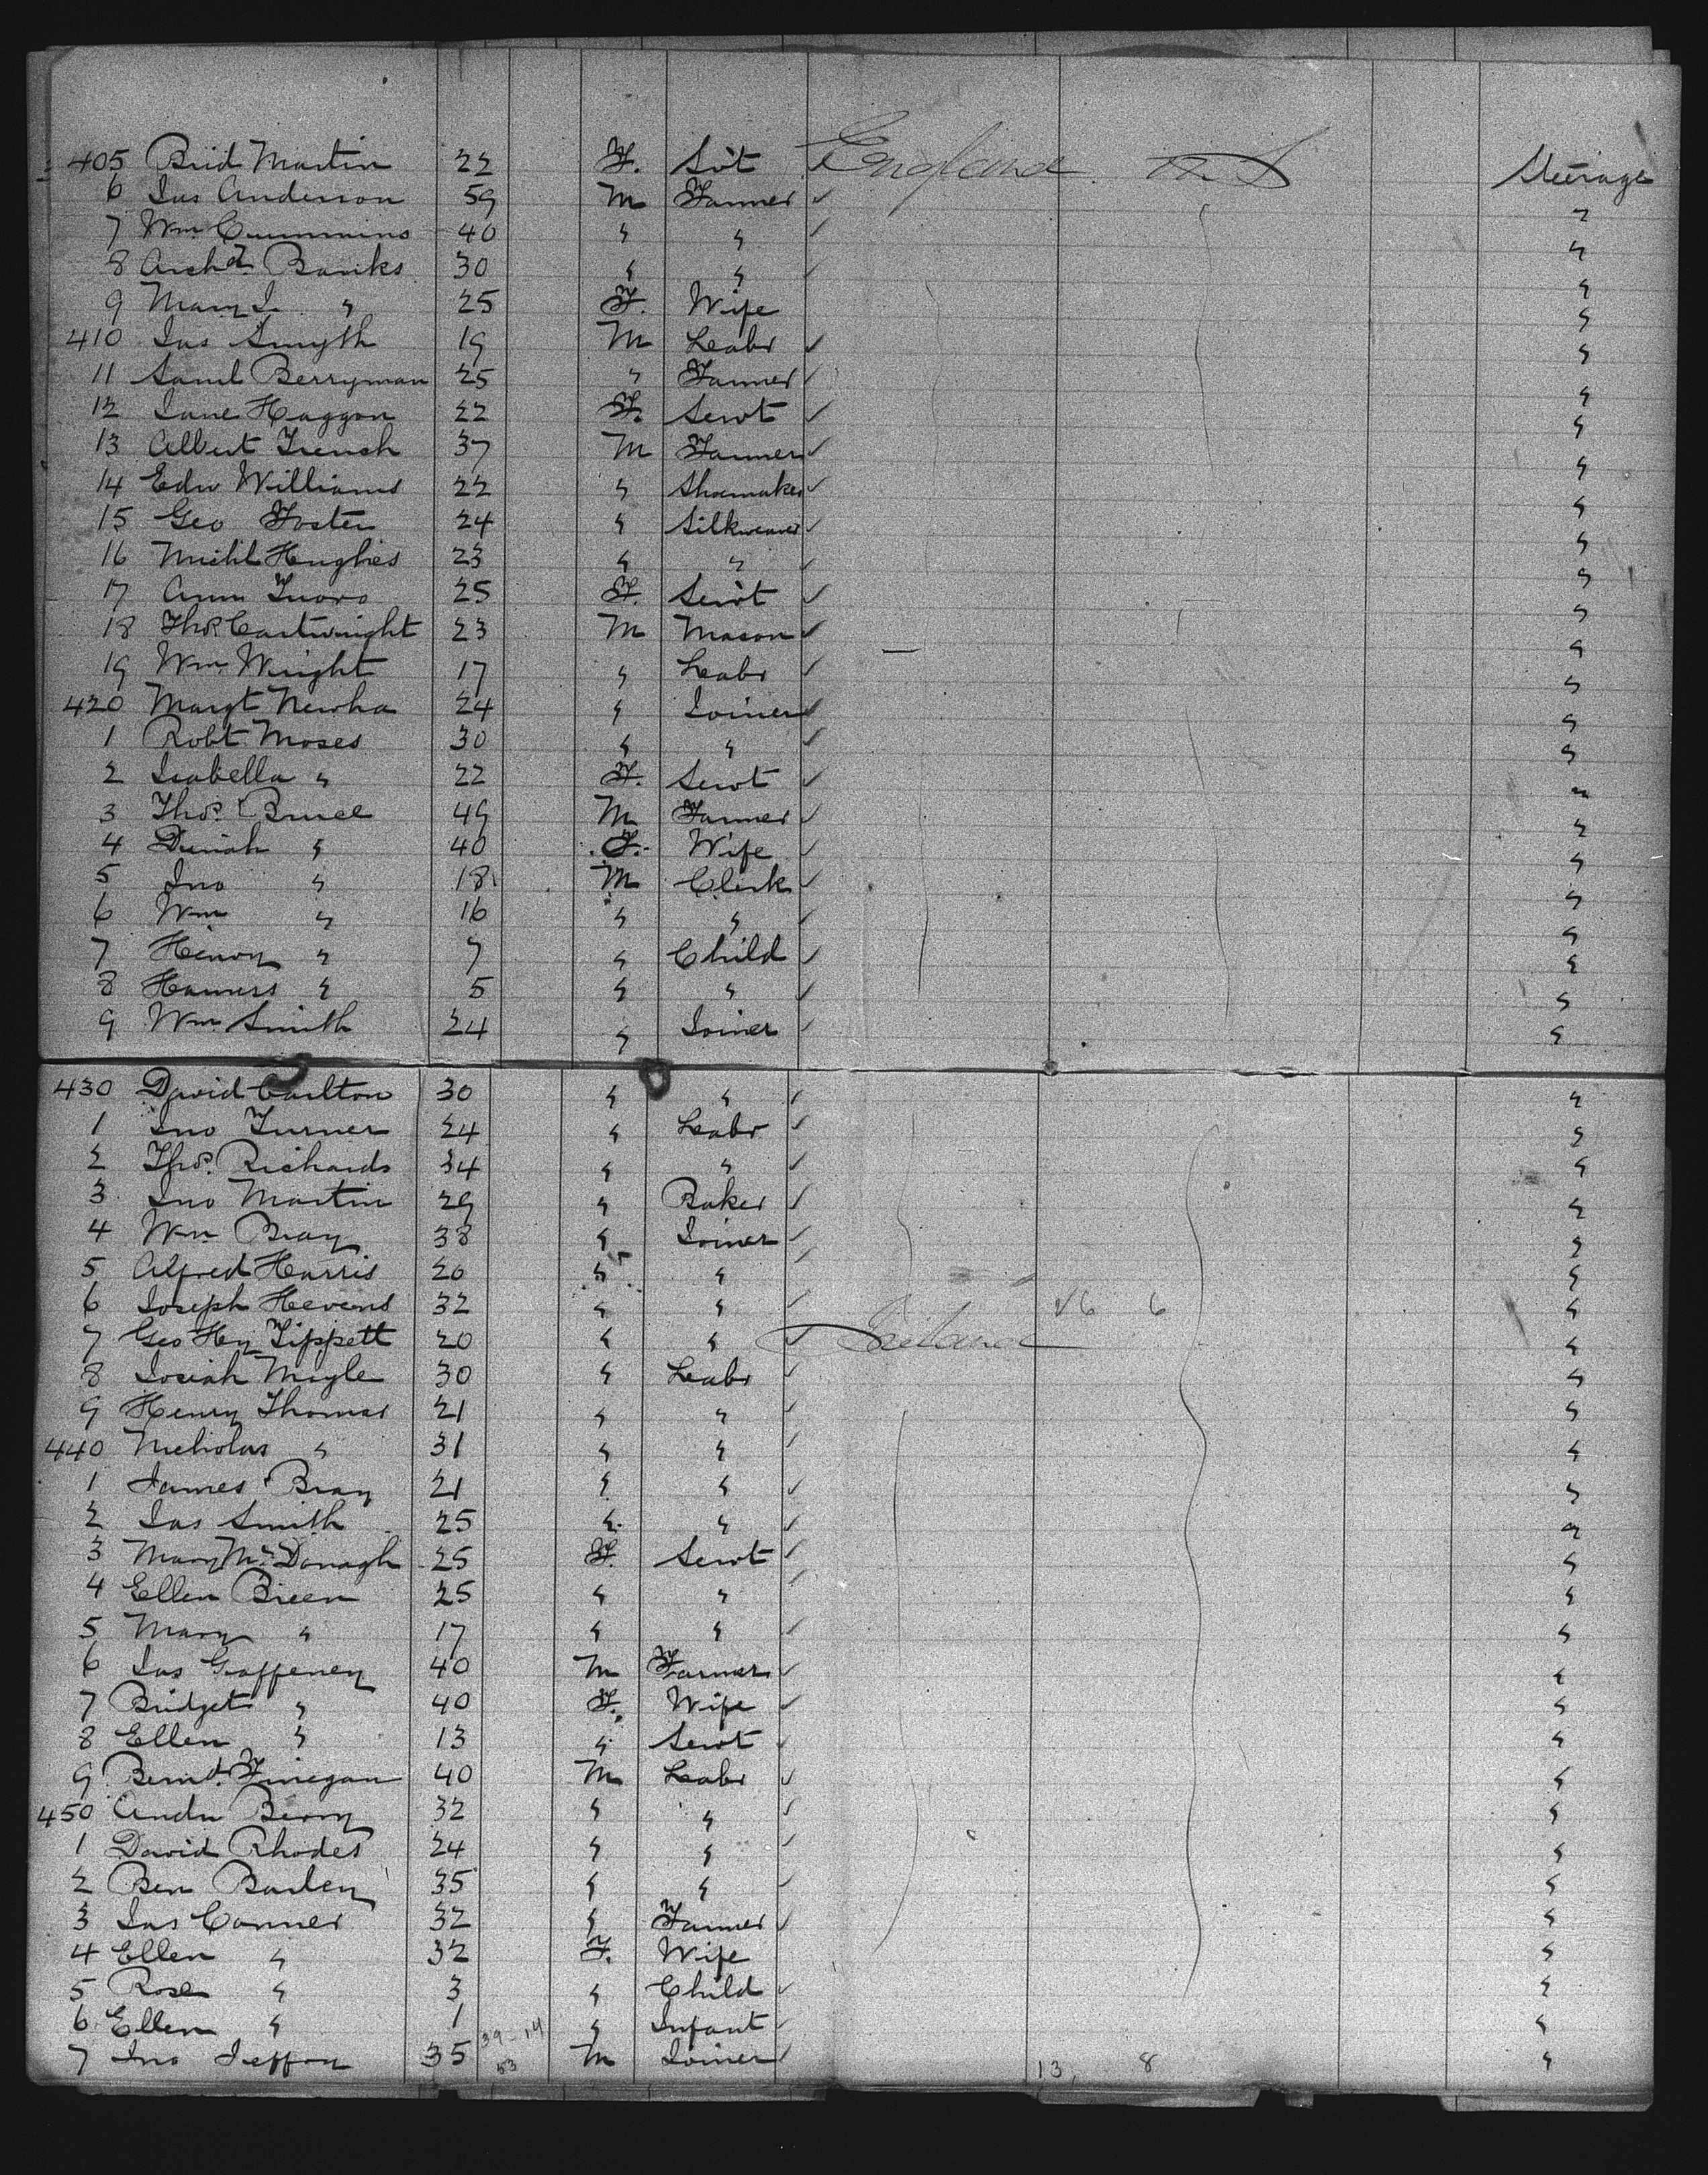 405 Brid Martin 22 F. Svt England U S Steerage
6 Jas Anderson 59 M Farmer ✓ "
7 Wm Cummins 40 " " ✓ "
8 Archd Banks 30 " " ✓ "
9 Mary J. " 25 F. Wife "
410 Jas Smyth 19 M Labr ✓ "
11 Saml Berryman 25 " Farmer ✓ "
12 Jane Haggon 22 F. Servt ✓ "
13 Albert French 37 M Farmer ✓ "
14 Edw Williams 22 " Shoemaker ✓ "
15 Geo Foster 24 " Silkweaver ✓ "
16 Michl Hughes 23 " " ✓ "
17 Ann 25 F. Servt ✓ "
18 Thos Cartwright 23 M Mason ✓ "
19 Wm Wright 17 " Labr ✓ "
420 Margt Newha 24 " Joiner ✓ "
1 Robt Moses 30 " " ✓ "
2 Isabella " 22 F. Servt ✓ "
3 Thos. Bruce 49 M Farmer ✓ "
4 Dinah " 40 F. Wife ✓ "
5 Jno " 18 M Clerk ✓ "
6 Wm " 16 " " ✓ "
7 Henry " 7 " Child ✓ "
8 " 5 " " ✓ "
9 Wm Smith 24 " Joiner ✓ "
430 David Carlton 30 " " ✓ "
1 Jno Turner 24 " Labr ✓ "
2 Thos. Richards 34 " " ✓ "
3 Jno Martin 29 " Baker ✓ "
4 Wm Bray 38 " Joiner ✓ "
5 Alfred Harris 20 " " ✓ "
6 Joseph Hevens 32 " " ✓ 6 "
7 Geo Hy Tippett 20 " " ✓ Ireland "
8 Josiah Mayle 30 " Labr ✓ "
9 Henry Thomas 21 " " ✓ "
440 Nicholas " 31 " " ✓ "
1 James Bray 21 " " ✓ "
2 Jas Smith 25 " " ✓ "
3 Mary McDonagh 25 F. Servt ✓ "
4 Ellen Breen 25 " " ✓ "
5 Mary " 17 " " ✓ "
6 Jas Gaffeney 40 M Farmer ✓ "
7 Bridget " 40 F. Wife ✓ "
8 Ellen " 13 " Servt ✓ "
9 Bernd. Finegan 40 M Labr ✓ "
450 Andw Berry 32 " " ✓ "
1 David Rhodes 24 " " ✓ "
2 Ben Barley 35 " " ✓ "
3 Jas Conner 32 " Farmer ✓ "
4 Ellen " 32 F. Wife "
5 Rose " 3 " Child ✓ "
6 Ellen " 1 39-14 " Infant ✓ "
7 Jno Jeffry 35 53 M Joiner ✓ 13, 8 "